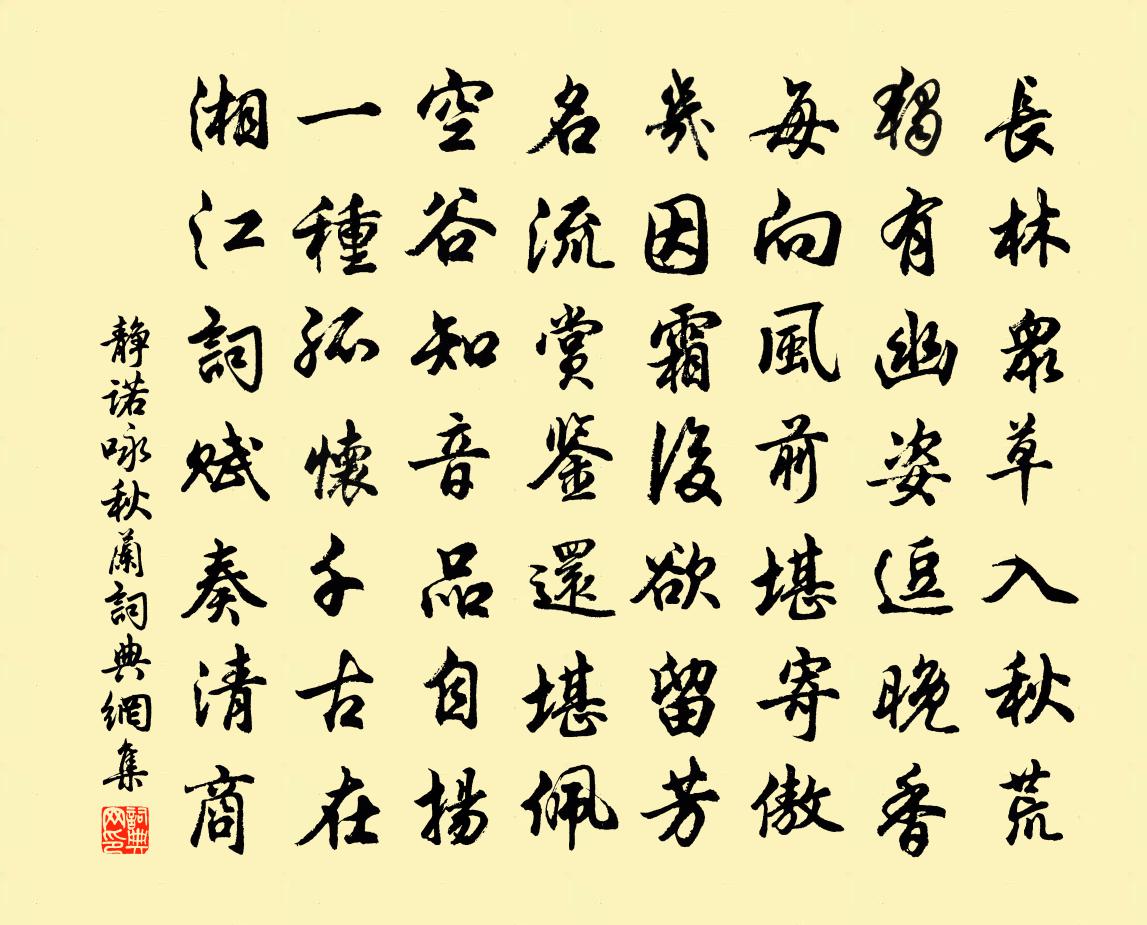 長林衆草入秋荒
獨有幽姿逗晚香
每向風前堪寄傲
幾因霜後欲留芳
名流賞鑒還堪佩
空谷知音品自揚
一種孤懷千古在
湘江詞賦奏清商
靜诺咏秋蘭詞典網集
詞典网印